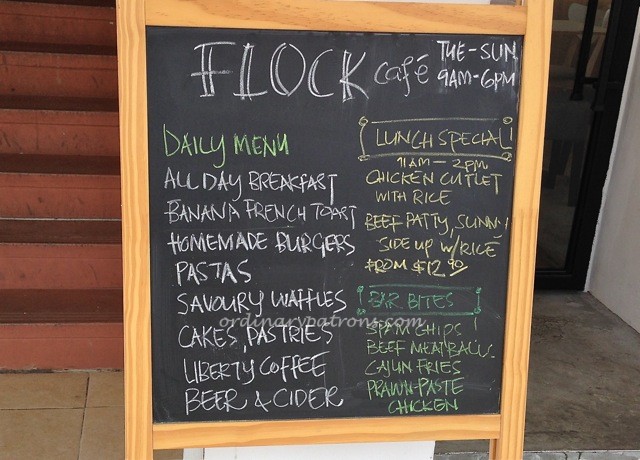 FLOCK café
TUE-SUN
9AM-6PM
DAILY MENU
ALL DAY BREAKFAST
BANANA FRENCH TOAST
HOMEMADE BURGERS
PASTAS
SAVOURY WAFFLES
CAKES, PASTRIES
LIBERTY COFFEE
BEER & CIDER
LUNCH SPECIAL
11AM - 2PM
CHICKEN CUTLET
WITH RICE
BEEF PATTY, SUNNY
SIDE UP W/ RICE
FROM $12.90
BAR BITES
SPAM CHIPS
BEEF MEATBALLS
CAJUN FRIES
PRAWN-PASTE
CHICKEN
ordinarypatrons.com